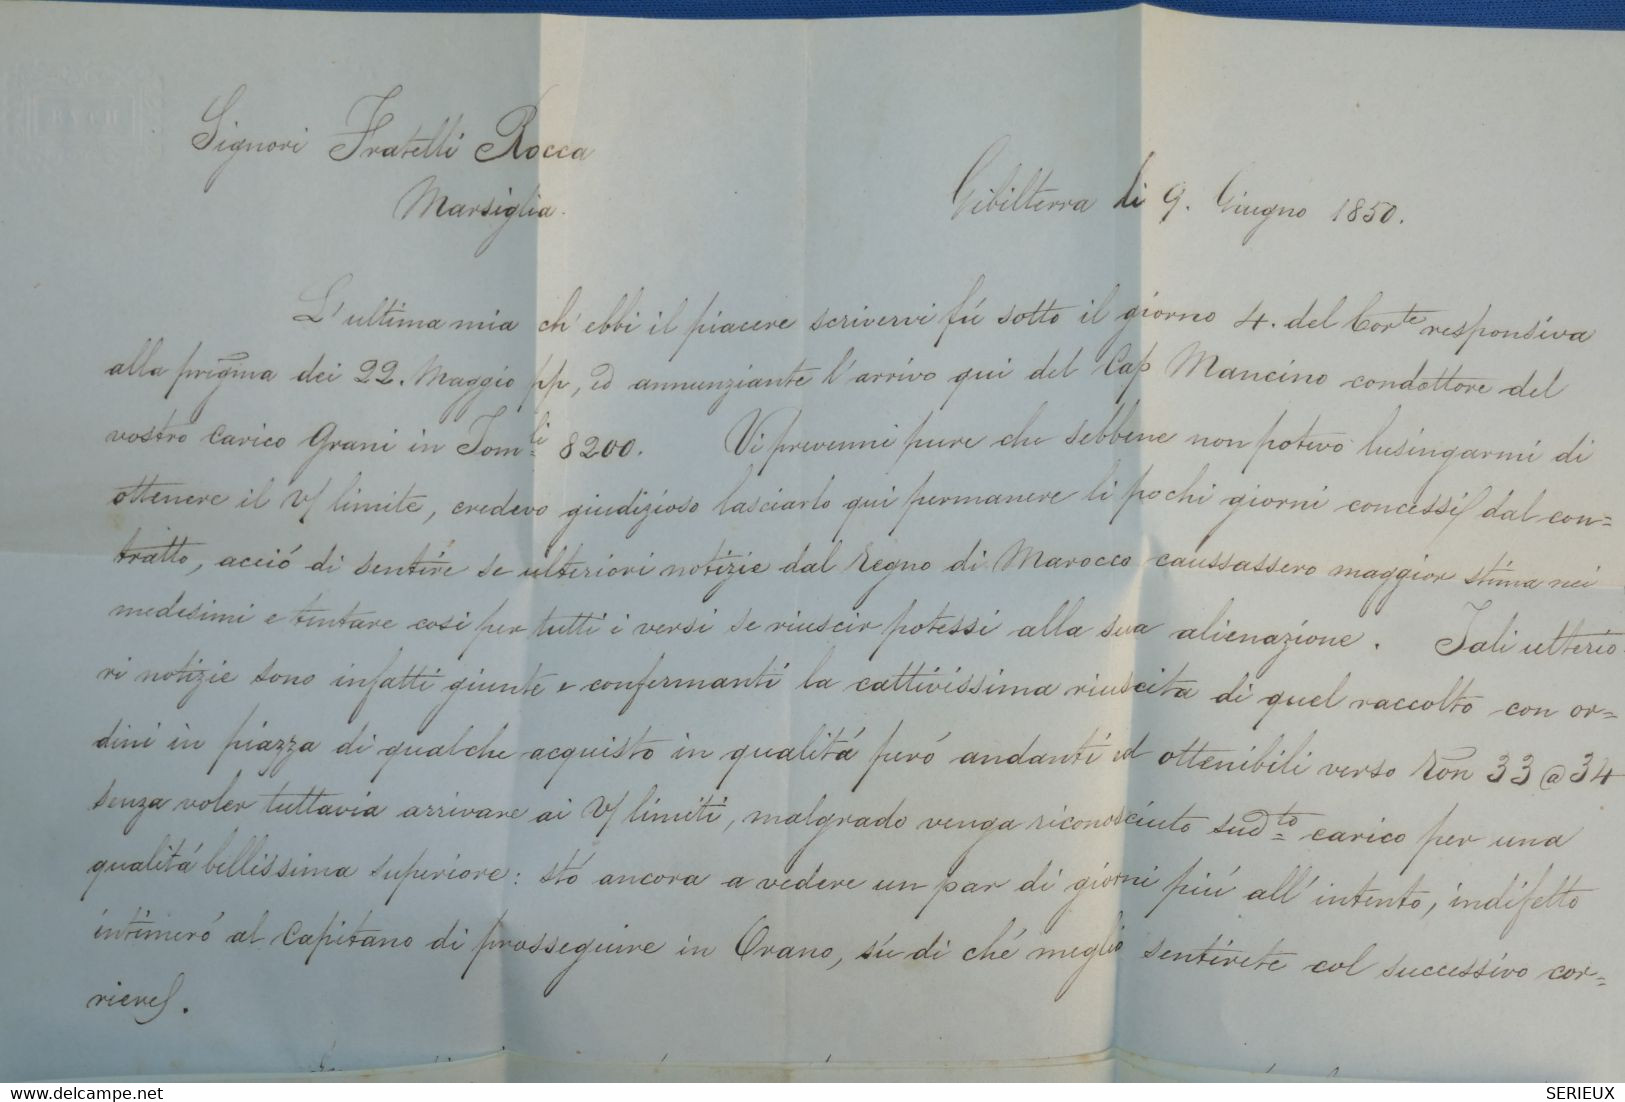 BATH
Signori Fratelli Rocca
Marsiglia.
Gibilterra li 9. Giugno 1850.
L'ultima mia ch'ebbi il piacere scrivervi fú sotto il giorno 4. del Corte responsiva
alla pregma dei 22. Maggio pp, ed annunziante l'arrivo qui del Cap Mancino condottore del
vostro carico Grani in Tomli 8200. Vi prevenni pure che sebbene non potevo lusingarmi di
ottenere il V/ limite, credevo giudizioso lasciarlo qui permanere li pochi giorni concessi dal con=
tratto, acció di sentire se ulteriori notizie dal Regno di Marocco caussassero maggior stima nei
medesimi e tentare cosi per tutti i versi se riuscir potessi alla sua alienazione. Tali ulterio
ri notizie sono infatti giunte e confermanti la cattivissima riuscita di quel raccolto con or=
dini in piazza di qualche acquisto in qualitá peró andanti ed ottenibili verso Ron 33 @ 34
senza voler tuttavia arrivare ai V/ limiti, malgrado venga riconosciuto sudto carico per una
qualitá bellissima superiore: stó ancora a vedere un par di giorni piú all'intento, indifetto
intimeró al Capitano di prosseguire in Orano, sú di ché meglio sentirete col successivo cor=
riere.
SERIEUX
delcampe.net